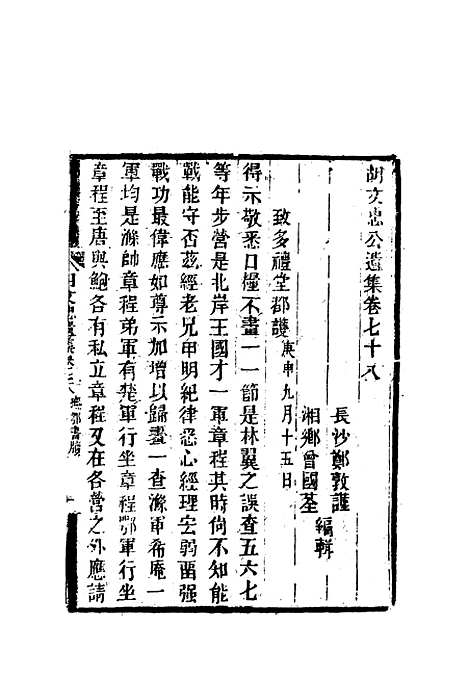 胡文忠公遺集卷七十八
長沙鄭敦謹
湘鄉曾國荃
編輯
致多禮堂都護庚申九月十五日
得示敬悉口糧不畫一一節是林翼之誤查五六七
等年步營是北岸王國才一軍章程其時尚不知能
戰能守否茲經老兄申明紀律悉心經理去弱留强
戰功最偉應如尊示加增以歸畫一查滌軍希庵一
軍均是滌帥章程弟軍有楚軍行坐章程鄂軍行坐
章程至唐與鮑各有私立章程又在各營之外應請
撫鄂書牘